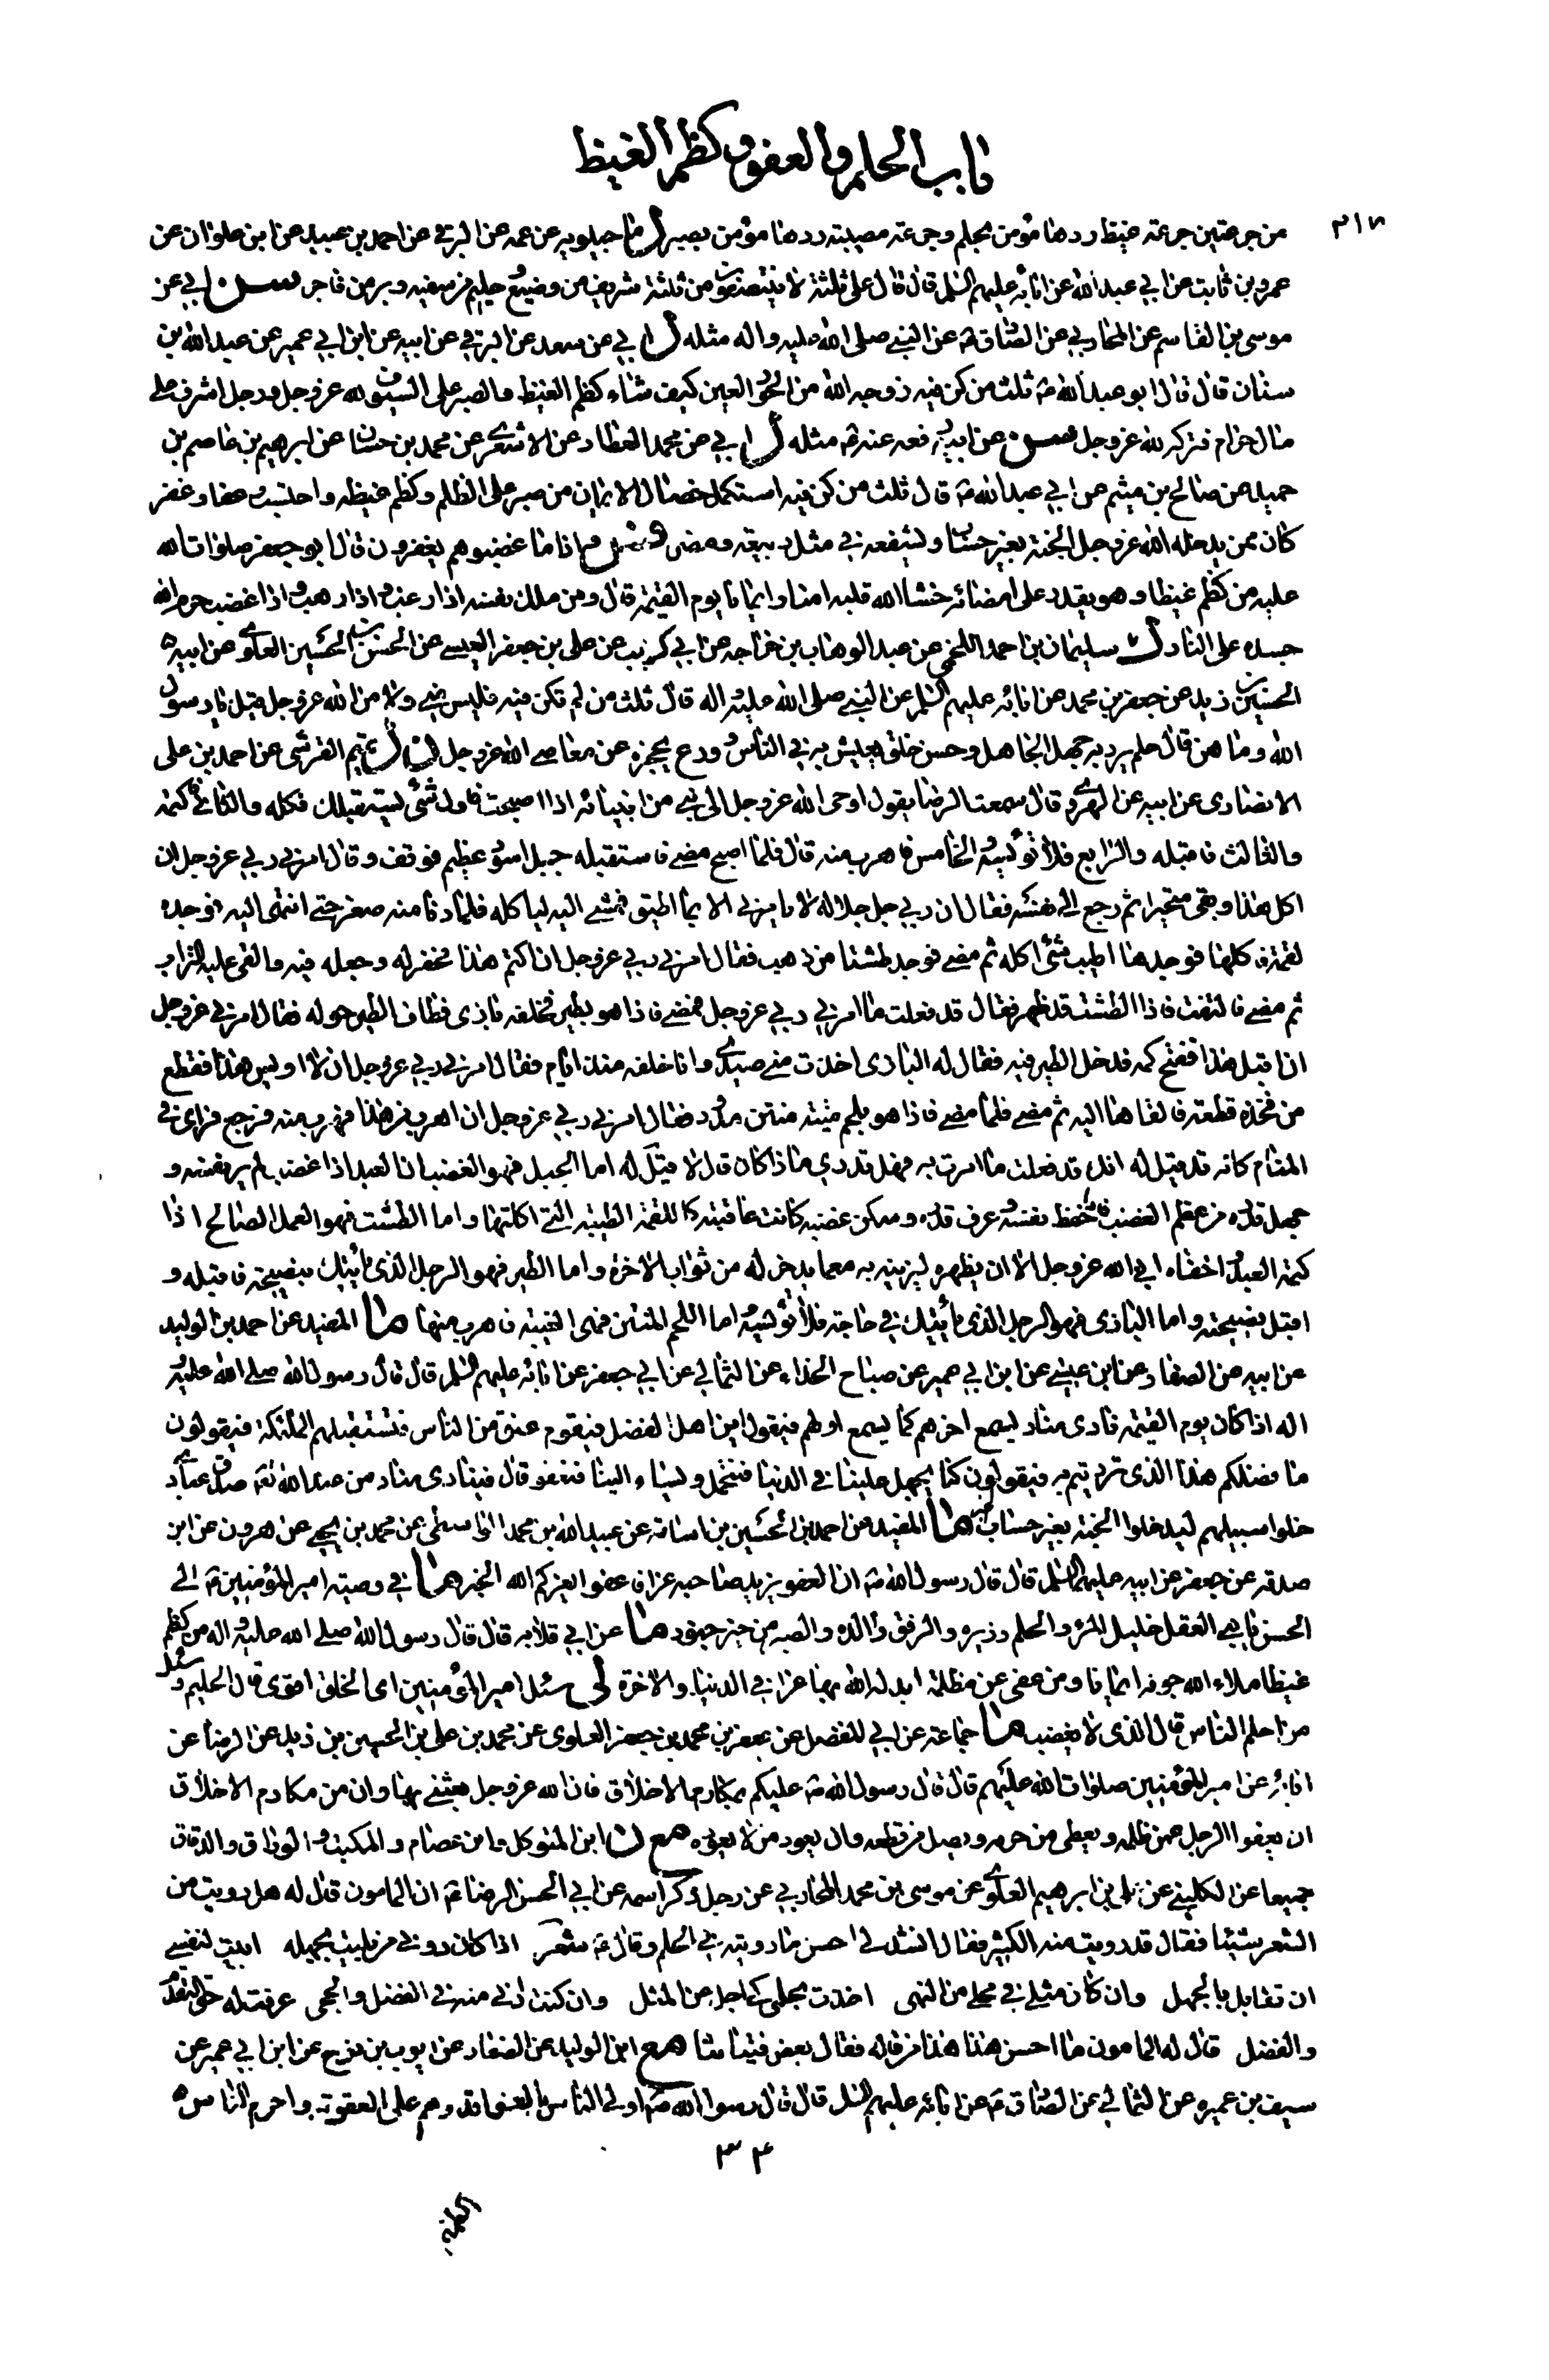 باب الحلم والعفو وكظم الغيظ
٢١٨
من جرعتين جرعة غيظ ردها مؤمن بحلم وجرعة مصيبة ردها مؤمن بصبر ل ما جيلويه عن عمه عن البرقي عن احمد بن عبيد عن ابن علوان عن
عمرو بن ثابت عن ابي عبد الله عن ابائه عليهم السلم قال قال علي ثلثة لا ينتصفون من ثلثة شريف من وضيع وحليم من سفيه وبر من فاجر سن ابي عن
موسى بن القاسم عن المحاربي عن الصادق ع عن النبي صلى الله عليه واله مثله ل ابي عن سعد عن البرقي عن ابيه عن ابن ابي عمير عن عبد الله بن
سنان قال قال ابو عبد الله ع ثلث من كن فيه زوجه الله من الحور العين كيف شاء كظم الغيظ والصبر على السيوف لله عز وجل ورجل اشرف على
مال حرام فتركه لله عز وجل سن عن ابيه رفعه عنه ع مثله ل ابي عن محمد العطار عن الاشعري عن محمد بن حسان عن ابرهيم بن عاصم بن
حميد عن صالح بن ميثم عن ابي عبد الله ع قال ثلث من كن فيه استكمل خصال الايمان من صبر على الظلم وكظم غيظه واحتسب وعفا وغفر
كان ممن يدخله الله عز وجل الجنة بغير حساب ويشفعه في مثل ربيعة ومضر فس واذا ما غضبوهم يغفرون قال ابو جعفر صلوات الله
عليه من كظم غيظا وهو يقدر على امضائه حشا الله قلبه امنا وايمانا يوم القيمة قال ومن ملك نفسه اذا رغب واذا رهب واذا غضب حرم الله
جسده على النار ل سليمان بن احمد اللخمي عن عبد الوهاب بن خراجه عن ابي كريب عن علي بن جعفر العبسي عن الحسن بن الحسين العلوي عن ابيه
الحسين بن زيد عن جعفر بن محمد عن ابائه عليهم السلم عن النبي صلى الله عليه واله قال ثلث من لم تكن فيه فليس مني ولا من الله عز وجل قيل يا رسول
الله وما هن قال حلم يرد به جهل الجاهل وحسن خلق يعيش به في الناس وورع يحجزه عن معاصي الله عز وجل ن ل تميم القرشي عن احمد بن علي
الانصاري عن ابيه عن الهروي قال سمعت الرضا يقول اوحى الله عز وجل الى نبي من انبيائه اذا اصبحت فاول شئ يستقبلك فكله والثاني فاكتمه
والثالث فاقبله والرابع فلا تؤيسه والخامس فاهرب منه قال فلما اصبح مضى فاستقبله جبل اسود عظيم فوقف وقال امرني ربي عز وجل ان
اكل هذا وبقي متحيرا ثم رجع الى نفسه فقال ان ربي جل جلاله لا يامرني الا بما اطيق فمشى اليه لياكله فلما دنا منه صغر حتى انتهى اليه فوجده
لقمة فاكلها فوجدها اطيب شئ اكله ثم مضى فوجد طشتا من ذهب فقال امرني ربي عز وجل ان اكتم هذا فحفر له وجعله فيه والقى عليه التراب
ثم مضى فالتفت فاذا الطشت قد ظهر فقال قد فعلت ما امرني ربي عز وجل فمضى فاذا هو بطير وخلفه بازي فطاف الطير حوله فقال امرني عز وجل
ان اقبل هذا ففتح كمه فدخل الطير فيه فقال له البازي اخذت مني صيدي وانا خلفه منذ ايام فقال امرني ربي عز وجل ان لا اويس هذا فقطع
من فخذه قطعة فالقاها اليه ثم مضى فلما مضى فاذا هو بلحم ميتة منتن مدود فقال امرني ربي عز وجل ان اهرب من هذا فهرب منه ورجع فراى في
المنام كانه قد قيل له انك قد فعلت ما امرت به فهل تدري ماذا كان قال لا قيل له اما الجبل فهو الغضب ان العبد اذا غضب لم ير نفسه و
جهل قدره من عظم الغضب فاذا حفظ نفسه وعرف قدره وسكن غضبه كانت عاقبته كاللقمة الطيبة التي اكلتها واما الطشت فهو العمل الصالح اذا
كتمه العبد واخفاه ابى الله عز وجل الا ان يظهره ليزينه به مع ما يدخر له من ثواب الاخرة واما الطير فهو الرجل الذي ياتيك بنصيحة فاقبله و
اقبل نصيحته واما البازي فهو الرجل الذي ياتيك في حاجة فلا تؤيسه واما اللحم المنتن فهي الغيبة فاهرب منها ما المفيد عن احمد بن الوليد
عن ابيه عن الصفار عن ابن عيسى عن ابن ابي عمير عن صباح الحذاء عن الثمالي عن ابي جعفر عن ابائه عليهم السلم قال قال رسول الله صلى الله عليه و
اله اذا كان يوم القيمة نادى مناد يسمع اخرهم كما يسمع اولهم فيقول اين اهل الفضل فيقوم عنق من الناس فتستقبلهم الملئكة فيقولون
ما فضلكم هذا الذي ترديتم به فيقولون كنا يجهل علينا في الدنيا فنتحمل ويساء الينا فنعفو قال فينادي مناد من عند الله تع صدق عبادي
خلوا سبيلهم ليدخلوا الجنة بغير حساب ما المفيد عن احمد بن الحسين بن اسامة عن عبيد الله بن محمد الواسطي عن محمد بن يحيى عن هرون عن ابن
صدقه عن جعفر عن ابيه عليهما السلم قال قال رسول الله ص ان العفو يزيد صاحبه عزا فاعفوا يعزكم الله الخبر ما في وصية امير المؤمنين ع الى
الحسن يا بني العقل خليل المرء والحلم وزيره والرفق والده والصبر من خير جنوده ما عن ابي قلابه قال قال رسول الله صلى الله عليه واله من كظم
غيظا ملاء الله جوفه ايمانا ومن عفى عن مظلمة ابدله الله بها عزا في الدنيا والاخرة لي سئل امير المؤمنين اي الخلق اقوى قال الحليم وسئل
من احلم الناس قال الذي لا يغضب ما جماعة عن ابي المفضل عن جعفر بن محمد بن جعفر العلوي عن محمد بن علي بن الحسين بن زيد عن الرضا عن
ابائه عن امير المؤمنين صلوات الله عليهم قال قال رسول الله ص عليكم بمكارم الاخلاق فان الله عز وجل بعثني بها وان من مكارم الاخلاق
ان يعفوا الرجل عمن ظلمه ويعطي من حرمه ويصل من قطعه وان يعود من لا يعوده مع ن ابن المتوكل وابن عصام والمكتب والوراق والدقاق
جميعا عن الكليني عن علي بن ابرهيم العلوي عن موسى بن محمد المحاربي عن رجل ذكر اسمه عن ابي الحسن الرضا ع ان المامون قال له هل رويت من
الشعر شيئا فقال قد رويت منه الكثير فقال انشدني احسن ما رويته في الحلم وقال ع شعر اذا كان دوني من بليت بجهله ابيت لنفسي
ان تقابل بالجهل وان كان مثلي في محلي من النهى اخذت بحلمي كي اجل عن المثل وان كنت ادنى منه في الفضل والحجى عرفت له حق التقدم
والفضل قال له المامون ما احسن هذا هذا من قاله فقال بعض فتياننا مع ابن الوليد عن الصفار عن ايوب بن نوح عن ابن ابي عمير عن
سيف بن عميره عن الثمالي عن الصادق ع عن ابائه عليهم السلم قال قال رسول الله ص اولى الناس بالعفو اقدرهم على العقوبة واحزم الناس
٣٤